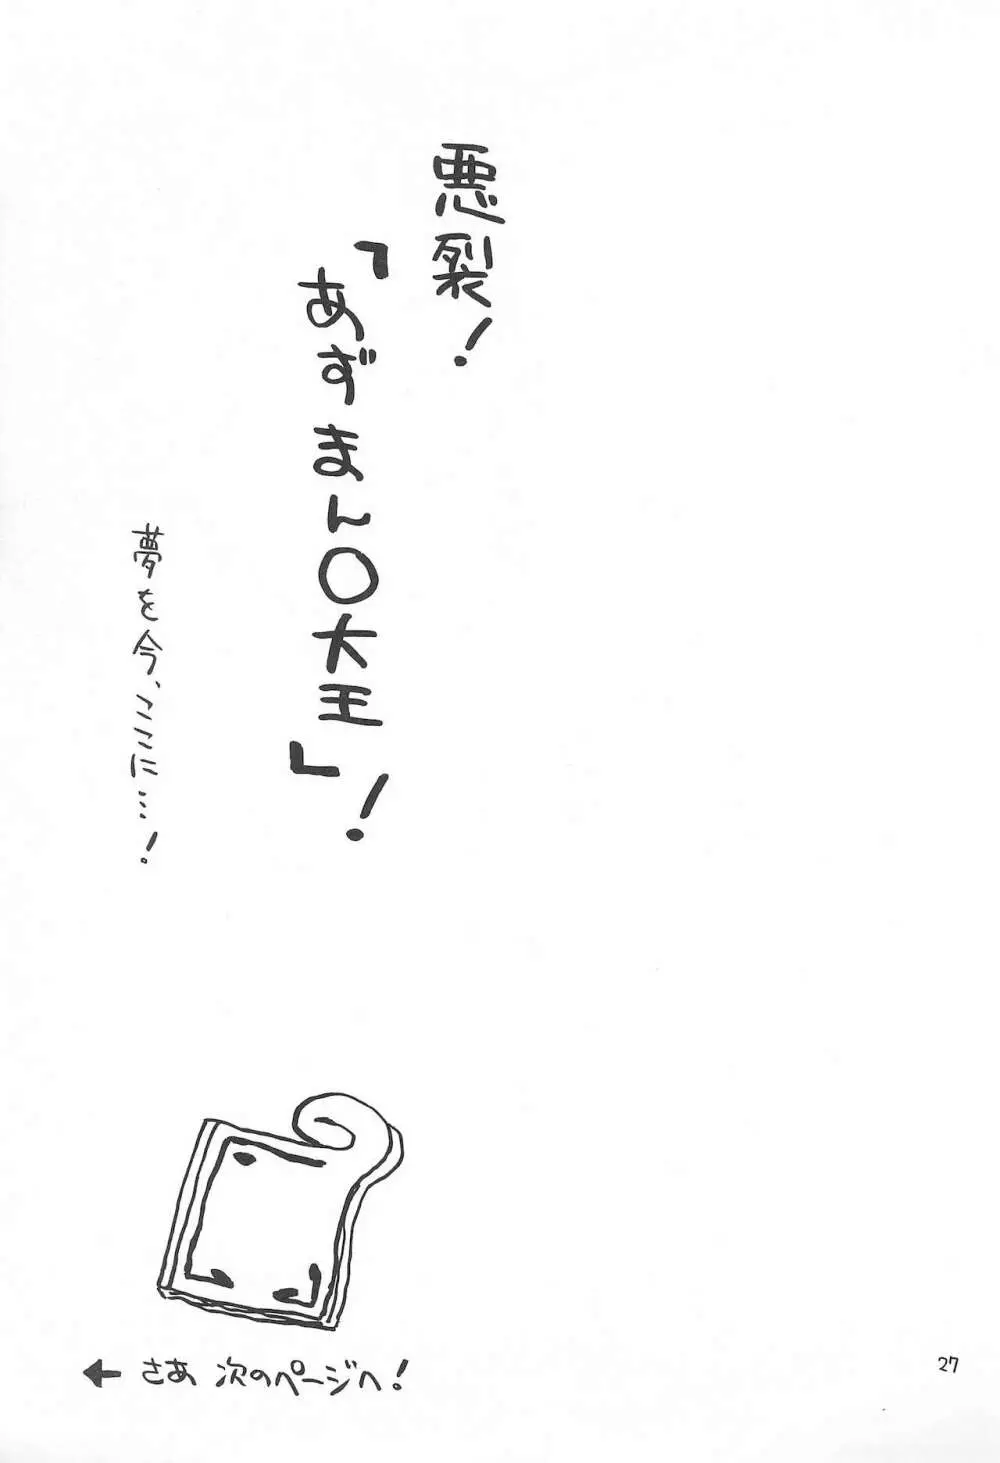 悪裂!
「あずまん○大王」!
夢を今、ここに…!
← さあ 次のページへ!
27